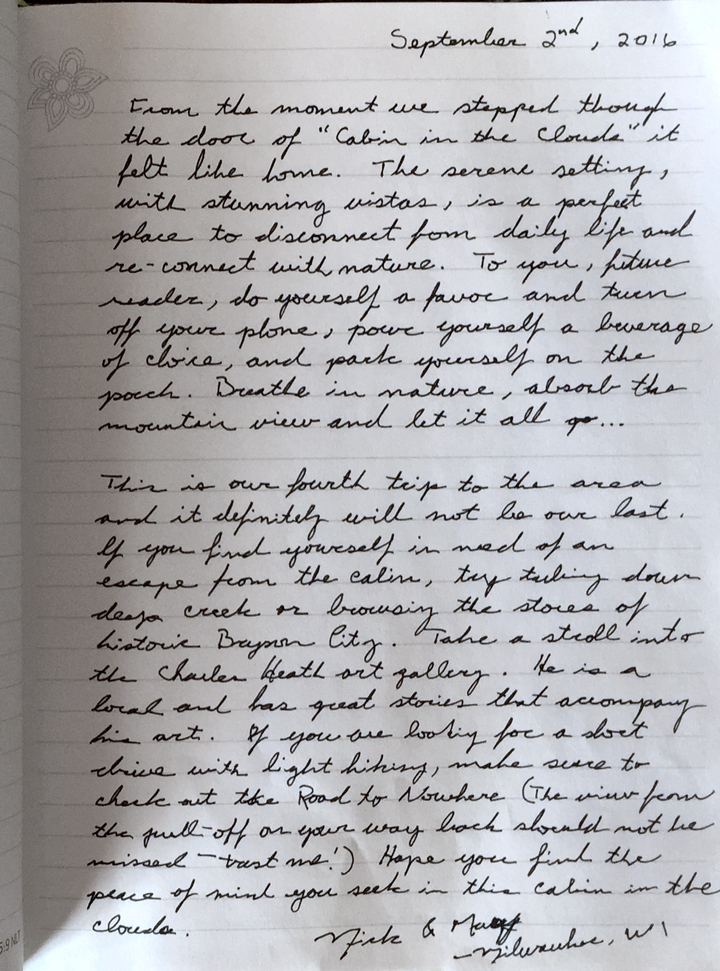 September 2nd, 2016
From the moment we stepped though
the door of "Cabin in the Clouds" it
felt like home. The serene setting,
with stunning vistas, is a perfect
place to disconnect from daily life and
re-connect with nature. To you, future
reader, do yourself a favor and turn
off your phone, pour yourself a beverage
of choice, and park yourself on the
porch. Breathe in nature, absorb the
mountain view and let it all go...
This is our fourth trip to the area
and it definitely will not be our last.
If you find yourself in need of an
escape from the cabin, try tubing down
deep creek or browsing the stores of
historic Bryson City. Take a stroll into
the Charles Heath art gallery. He is a
local and has great stories that accompany
his art. If you are looking for a short
drive with light hiking, make sure to
check out the Road to Nowhere (The view from
the pull-off on your way back should not be
missed - trust me!) Hope you find the
peace of mind you seek in this cabin in the
clouds.
Nick &
- Milwaukee, WI
5:9 NLT